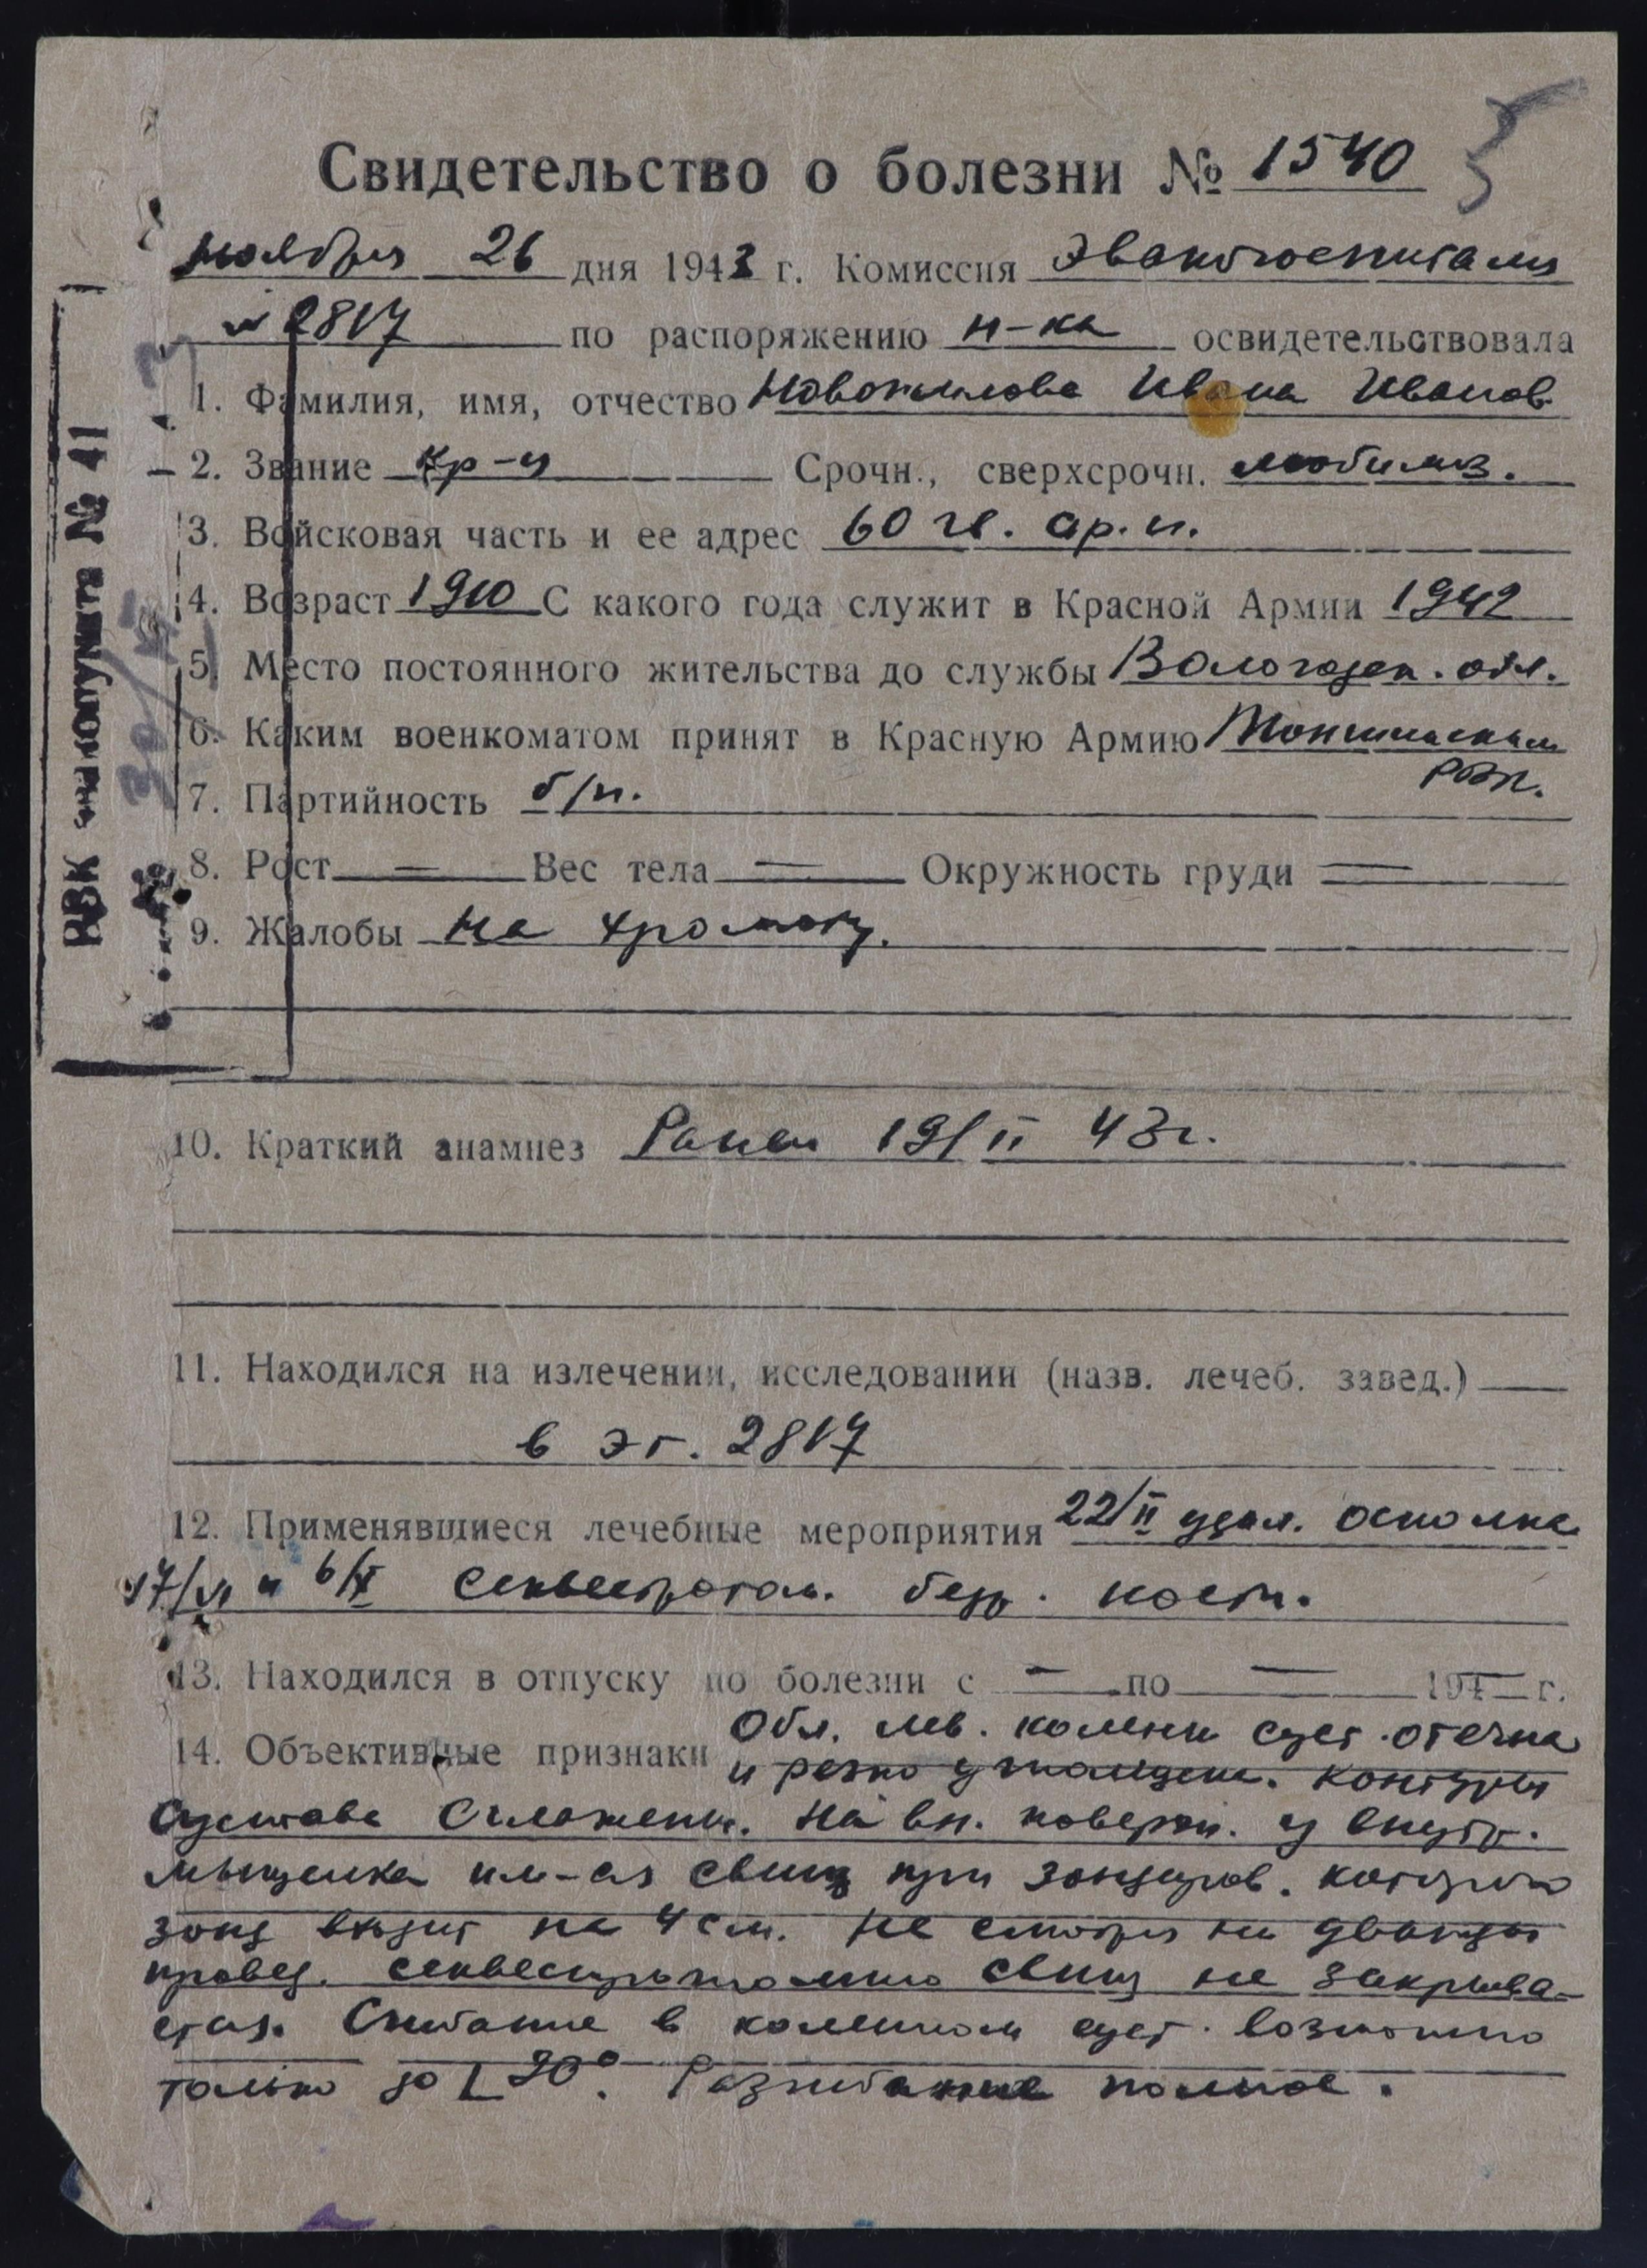 Свидетельство о болезни № 1540
ноября 26 дня 1943 г. Комиссия Эвакогоспиталя
№ 2817 по распоряжению н-ка освидетельствовала
1. Фамилия, имя, отчество Новожилова Ивана Иванов.
2. Звание кр-ц Срочн., сверхсрочн. мобилиз.
3. Войсковая часть и ее адрес 60 гв. ар. п.
4. Возраст 1910 С какого года служит в Красной Армии 1942
5. Место постоянного жительства до службы Вологодск. обл.
6. Каким военкоматом принят в Красную Армию
РВК.
7. Партийность б/п.
8. Рост — Вес тела — Окружность груди —
9. Жалобы На хромоту.
10. Краткий анамнез Ранен 19/II 43г.
11. Находился на излечении, исследовании (назв. лечеб. завед.)
в эг. 2817
12. Применявшиеся лечебные мероприятия 22/II удал. осколка
17/VI и 6/X секвестротом. бедр. кости.
13. Находился в отпуску по болезни с — по — 194— г.
14. Объективные признаки Обл. лев. коленн суст. отечна
и резко утолщена. Контуры
сустава сглажены. На вн. поверхн. у внутр.
мыщелка им-ся свищ при зондиров. которого
зонд входит на 4 см. Не смотря на дважды
провед. секвестротомию свищ не закрыва-
ется. Сгибание в коленном суст. возможно
только до L 90°. Разгибание полное.
РВК Вкл. пункта № 41